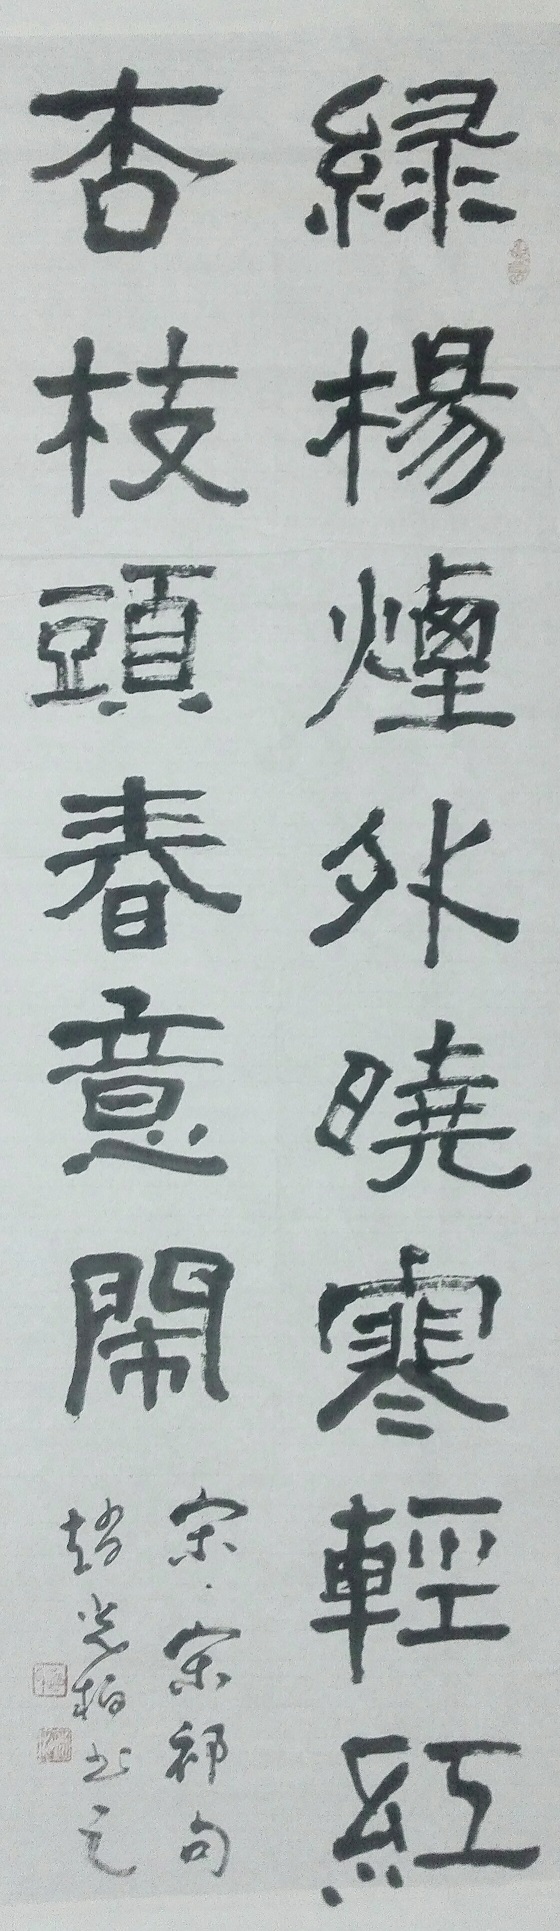 緑楊煙外曉寒輕紅
杏枝頭春意閙
宋·宋祁句
趙光栢书之